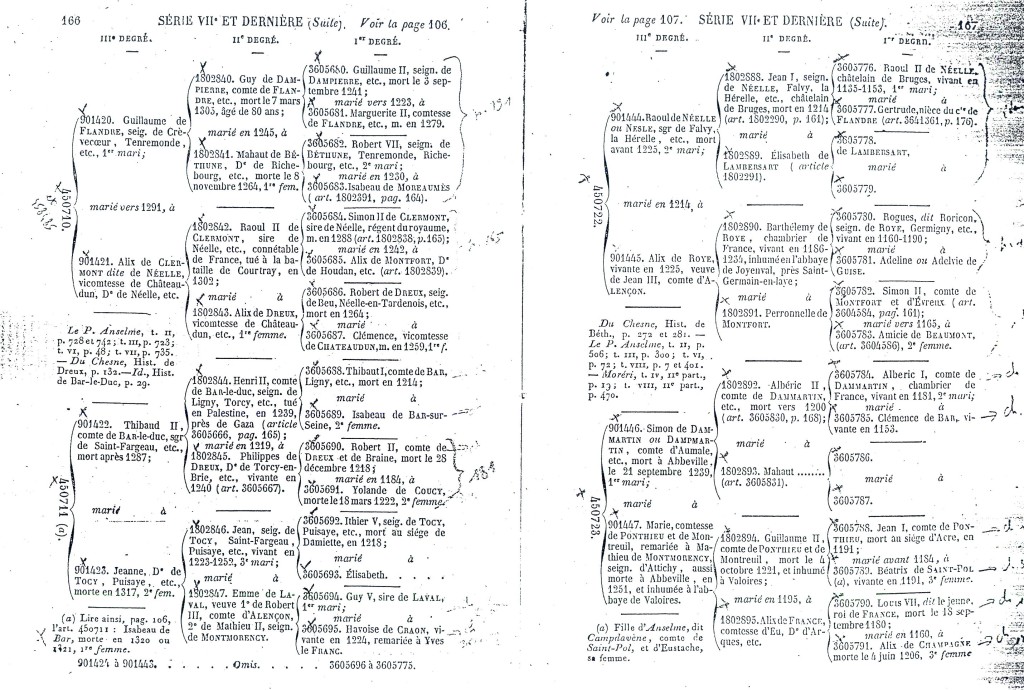 166 SÉRIE VIIe ET DERNIÈRE (Suite). Voir la page 106.
IIIe DEGRÉ. IIe DEGRÉ. Ier DEGRÉ.
901420. Guillaume de
FLANDRE, seig. de Crè-
vecœur, Tenremonde,
etc., 1er mari;
marié vers 1291, à
450710.
901421. Alix de CLER-
MONT dite de NÉELLE,
vicomtesse de Château-
dun, De de Néelle, etc.
Le P. Anselme, t. II,
p. 728 et 742; t. III, p. 723;
t. VI, p. 48; t. VII, p. 735.
— Du Chesne, Hist. de
Dreux, p. 132.—Id., Hist.
de Bar-le-Duc, p. 29.
901422. Thibaud II,
comte de BAR-le-duc, sgr
de Saint-Fargeau, etc.,
mort après 1287;
marié à
450711 (a).
901423. Jeanne, De de
TOCY, Puisaye, etc.,
morte en 1317, 2e fem.
(a) Lire ainsi, pag. 106,
l'art. 450711 : Isabeau de
Bar, morte en 1320 ou
1321, 1re femme.
1802840. Guy de DAM-
PIERRE, comte de FLAN-
DRE, etc., mort le 7 mars
1305, âgé de 80 ans;
marié en 1245, à
1802841. Mahaut de BÉ-
THUNE, De de Riche-
bourg, etc., morte le 8
novembre 1264, 1re fem.
1802842. Raoul II de
CLERMONT, sire de
Néelle, etc., connétable
de France, tué à la ba-
taille de Courtray, en
1302;
marié à
1802843. Alix de DREUX,
vicomtesse de Château-
dun, etc., 1re femme.
1802844. Henri II, comte
de BAR-le-duc, seign. de
Ligny, Torcy, etc., tué
en Palestine, en 1239,
près de Gaza (article
3605666, pag. 165);
marié en 1219, à
1802845. Philippes de
DREUX, De de Torcy-en-
Brie, etc., vivante en
1240 (art. 3605667).
1802846. Jean, seig. de
TOCY, Saint-Fargeau,
Puisaye, etc., vivant en
1223-1252, 3e mari;
marié à
1802847. Emme de LA-
VAL, veuve 1o de Robert
III, comte d'ALENÇON,
2o de Mathieu II, seign.
de MONTMORENCY.
3605680. Guillaume II, seign. de
DAMPIERRE, etc., mort le 3 sep-
tembre 1241;
marié vers 1223, à
3605681. Marguerite II, comtesse
de FLANDRE, etc., m. en 1279.
3605682. Robert VII, seign. de
BÉTHUNE, Tenremonde, Riche-
bourg, etc., 2e mari;
marié en 1230, à
3605683. Isabeau de MOREAUMÉS
(art. 1802391, pag. 164).
3605684. Simon II de CLERMONT,
sire de Néelle, régent du royaume,
m. en 1288 (art. 1802838, p. 165);
marié en 1242, à
3605685. Alix de MONTFORT, De
de Houdan, etc. (art. 1802839).
3605686. Robert de DREUX, seig.
de Beu, Néelle-en-Tardenois, etc.,
mort en 1264;
marié à
3605687. Clémence, vicomtesse
de CHATEAUDUN, m. en 1259, 1re f.
3605688. Thibaut I, comte de BAR,
Ligny, etc., mort en 1214;
marié à
3605689. Isabeau de BAR-sur-
Seine, 2e femme.
3605690. Robert II, comte de
DREUX et de Braine, mort le 28
décembre 1218;
marié en 1184, à
3605691. Yolande de COUCY,
morte le 18 mars 1222, 2e femme.
3605692. Ithier V, seig. de TOCY,
Puisaye, etc., mort au siége de
Damiette, en 1218;
marié à
3605693. Élisabeth. . . . .
3605694. Guy V, sire de LAVAL,
1er mari;
marié à
3605695. Havoise de CRAON, vi-
vante en 1224, remariée à Yves
le FRANC.
901424 à 901443. . . . . . Omis. . . . . . 3605696 à 3605775.
191
165
Voir la page 107. SÉRIE VIIe ET DERNIÈRE (Suite). 167
IIIe DEGRÉ. IIe DEGRÉ. Ier DEGRÉ.
901444. Raoul de NÉELLE
ou NESLE, sgr de Falvy,
la Hérelle, etc., mort
avant 1225, 2e mari;
marié en 1214, à
450722.
901445. Alix de ROYE,
vivante en 1225, veuve
de Jean III, comte d'A-
LENÇON.
Du Chesne, Hist. de
Béth., p. 272 et 281. —
Le P. Anselme, t. II, p.
506; t. III, p. 300; t. VI,
p. 72; t. VIII, p. 7 et 401.
— Moréri, t. IV, IIe part.,
p. 13; t. VIII, IIe part.,
p. 470.
901446. Simon de DAM-
MARTIN ou DAMPMAR-
TIN, comte d'Aumale,
etc., mort à Abbeville,
le 21 septembre 1239,
1er mari;
marié à
450723.
901447. Marie, comtesse
de PONTHIEU et de Mon-
treuil, remariée à Ma-
thieu de MONTMORENCY,
seign. d'Attichy, aussi
morte à Abbeville, en
1251, et inhumée à l'ab-
baye de Valoires.
(a) Fille d'Anselme, dit
Campdavène, comte de
Saint-Pol, et d'Eustache,
sa femme.
1802888. Jean I, seign.
de NÉELLE, Falvy, la
Hérelle, etc., châtelain
de Bruges, mort en 1214
(art. 1802290, p. 161);
marié à
1802889. Élisabeth de
LAMBERSART (article
1802291).
1802890. Barthélemy de
ROYE, chambrier de
France, vivant en 1186-
1234, inhumé en l'abbaye
de Joyenval, près Saint-
Germain-en-laye;
marié à
1802891. Perronnelle de
MONTFORT.
1802892. Albéric II,
comte de DAMMARTIN,
etc., mort vers 1200
(art. 3605830, p. 168);
marié à
1802893. Mahaut ........
(art. 3605831).
1802894. Guillaume II,
comte de PONTHIEU et de
Montreuil, mort le 4
octobre 1221, et inhumé
à Valoires;
marié en 1195, à
1802895. Alix de FRANCE,
comtesse d'Eu, De d'Ar-
ques, etc.
3605776. Raoul II de NÉELLE,
châtelain de Bruges, vivant en
1135-1153, 1er mari;
marié à
3605777. Gertrude, nièce du cte de
FLANDRE (art. 3641361, p. 176).
3605778.
de LAMBERSART,
marié à
3605779.
3605780. Rogues, dit Roricon,
seign. de ROYE, Germigny, etc.,
vivant en 1160-1190;
marié à
3605781. Adeline ou Adelvie de
GUISE.
3605782. Simon II, comte de
MONTFORT et d'Évreux (art.
3604584, pag. 161);
marié vers 1165, à
3605783. Amicie de BEAUMONT,
(art. 3604586), 2e femme.
3605784. Alberic I, comte de
DAMMARTIN, chambrier de
France, vivant en 1181, 2e mari;
marié à
3605785. Clémence de BAR, vi-
vante en 1153.
3605786.
marié à
3605787.
3605788. Jean I, comte de PON-
THIEU, mort au siége d'Acre, en
1191;
marié avant 1184, à
3605789. Béatrix de SAINT-POL
(a), vivante en 1191, 3e femme.
3605790. LOUIS VII, dit le jeune,
roi de FRANCE, mort le 18 sep-
tembre 1180;
marié en 1160, à
3605791. Alix de CHAMPAGNE
morte le 4 juin 1206, 3e femme